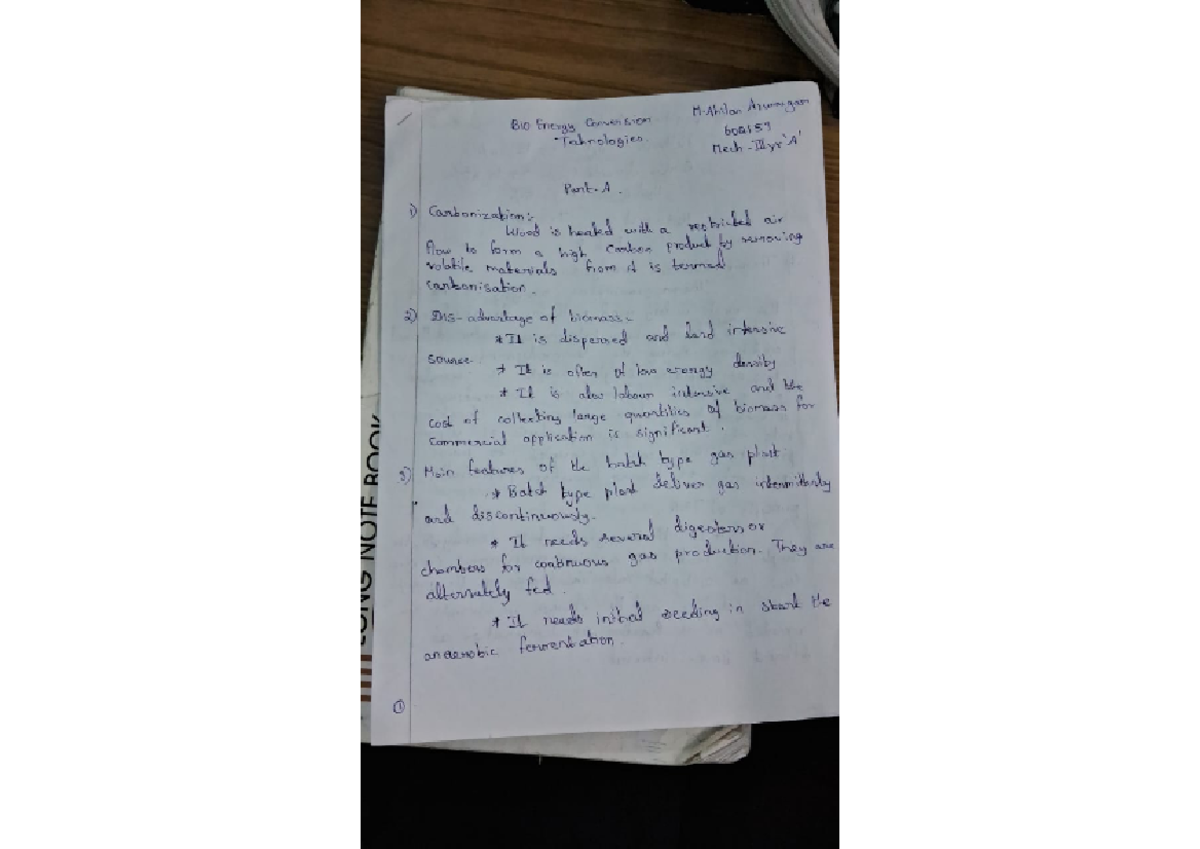 Bio Energy Conversion
Technologies.
M. Ahilan Arumugam
602159
Mech - III yr 'A'
Part - A.
1) Carbonization:-
Wood is heated with a restricted air
flow to form a high carbon product by removing
volatile materials from it is termed
carbonisation.
2) Dis-advantage of biomass:-
* It is dispersed and land intensive
source.
* It is often of low energy density
* It is also labour intensive and the
cost of collecting large quantities of biomass for
commercial application is significant.
3) Main features of the batch type gas plant.
* Batch type plant deliver gas intermittently
and discontinuously.
* It needs several digesters or
chambers for continuous gas production. They are
alternately fed.
* It needs initial seeding in start the
anaerobic fermentation.
1
LONG NOTE BOOK